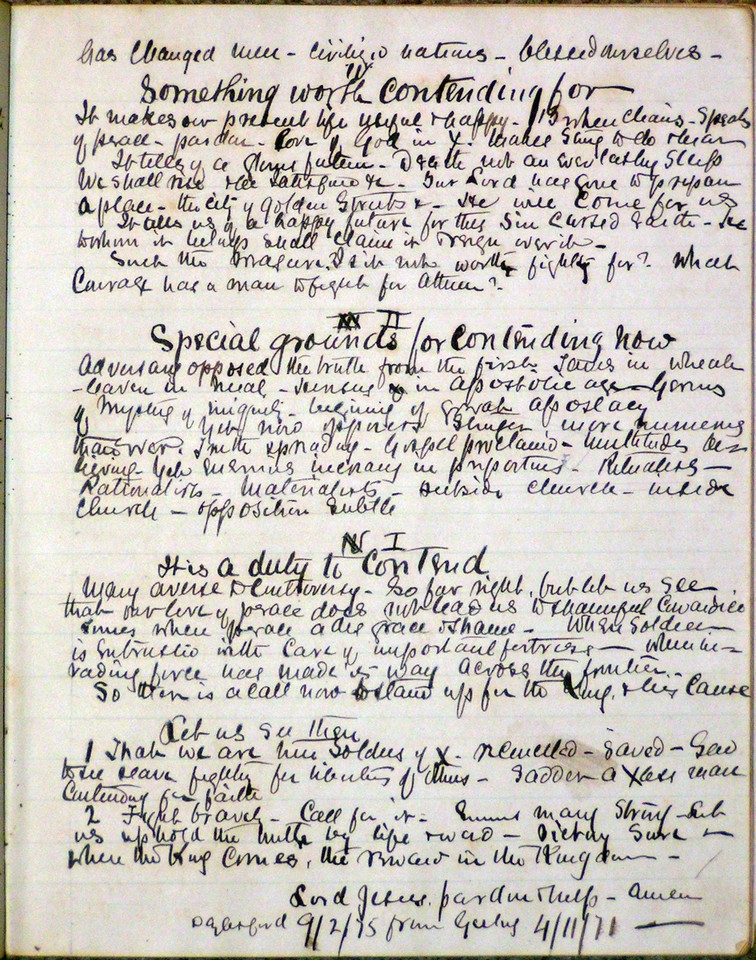 has changed men - civilized nations - blessed ourselves -
III
Something worth contending for
It makes our present life useful & happy - when chains - Speaks
of peace - pardon - love of God in X. makes strong to do & bear
It tells of a glorious future - Death not an everlasting sleep
We shall rise & be satisfied &c - Our Lord has gone to prepare
a place - the city of golden streets &c - He will come for us
It tells us of a happy future for this sin cursed earth - He
to whom it belongs shall claim it & reign over it -
Such the treasure. Is it not worth fighting for? What
Courage has a man to fight for
II
Special grounds for contending now
Adversary opposed the truth from the first. Tares in wheat
- leaven in meal - in apostolic age - Germs
of mystery of iniquity - beginning of great apostacy
Yet now opposers stronger more numerous
than ever. Truth spreading - Gospel proclaimed - multitudes be-
lieving - yet enemies increasing in proportion - Ritualists -
Rationalists - Materialists - outside church - inside
Church - opposition subtle
I
It is a duty to contend
Many averse to controversy - So far right, but let us see
that our love of peace does not lead us to shameful cowardice
times when peace a disgrace & shame - When Soldier
is entrusted with care of important fortress - when in-
vading force has made its way across the frontier.
So there is a call now to stand up for the King, & his Cause
Let us see then
1 That we are true Soldiers of X. - saved - God
to see slave fighting for liberties of others - Sadder a Xless man
Contending for faith
2 Fight bravely - Call for it - Enemies many strong - Let
us uphold the truth by life & word - Victory sure -
when the King comes, the reward in the Kingdom -
Lord Jesus, pardon & help - Amen
9/2/75 from 4/11/71